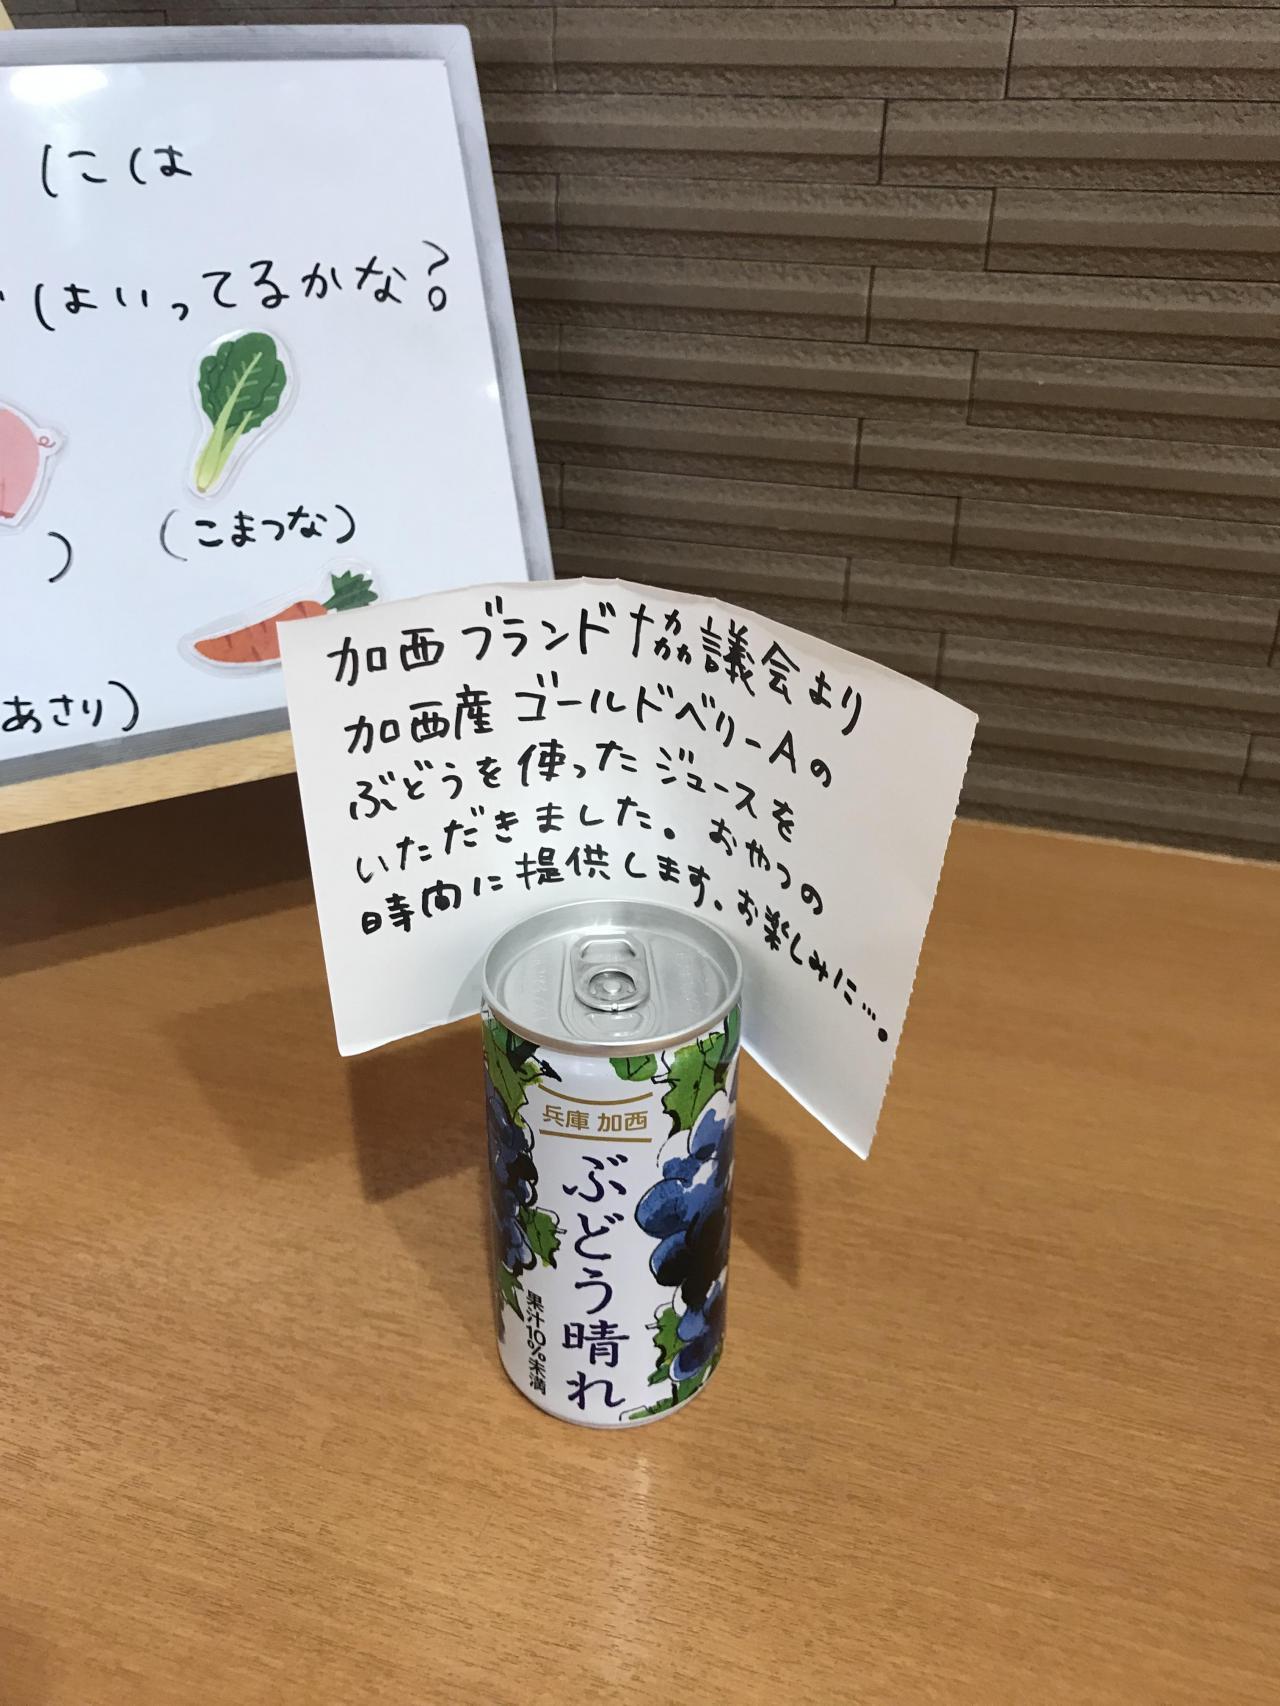 には
はいってるかな?
)
(こまつな)
あさり)
加西ブランド協議会より
加西産ゴールドベリーAの
ぶどうを使ったジュースを
いただきました。おやつの
時間に提供します。お楽しみに…。
兵庫 加西
ぶどう晴れ
果汁10%未満